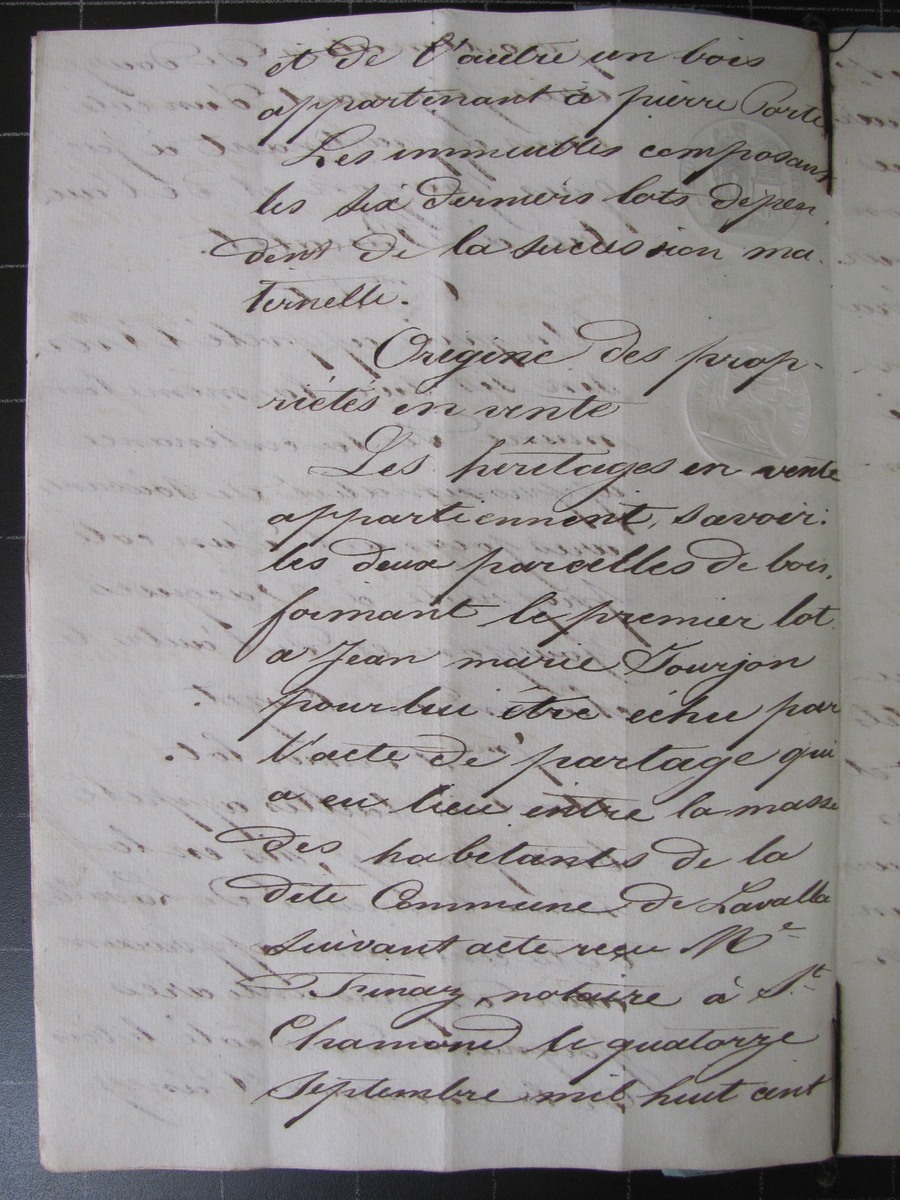 et de l'autre un bois
appartenant à pierre Porte
Les immeubles composant
les six derniers lots dépen-
dent de la succession ma-
ternelle.
Origine des prop-
riétés en vente
Les héritages en vente
appartiennent, savoir:
les deux parcelles de bois,
formant le premier lot
a Jean marie Tourjon
pour lui être échu par
l'acte de partage qui
a eu lieu entre la masse
des habitants de la
dite Commune de Lavalla
suivant acte reçu Me
notaire à St.
Chamond le quatorze
septembre mil huit cent